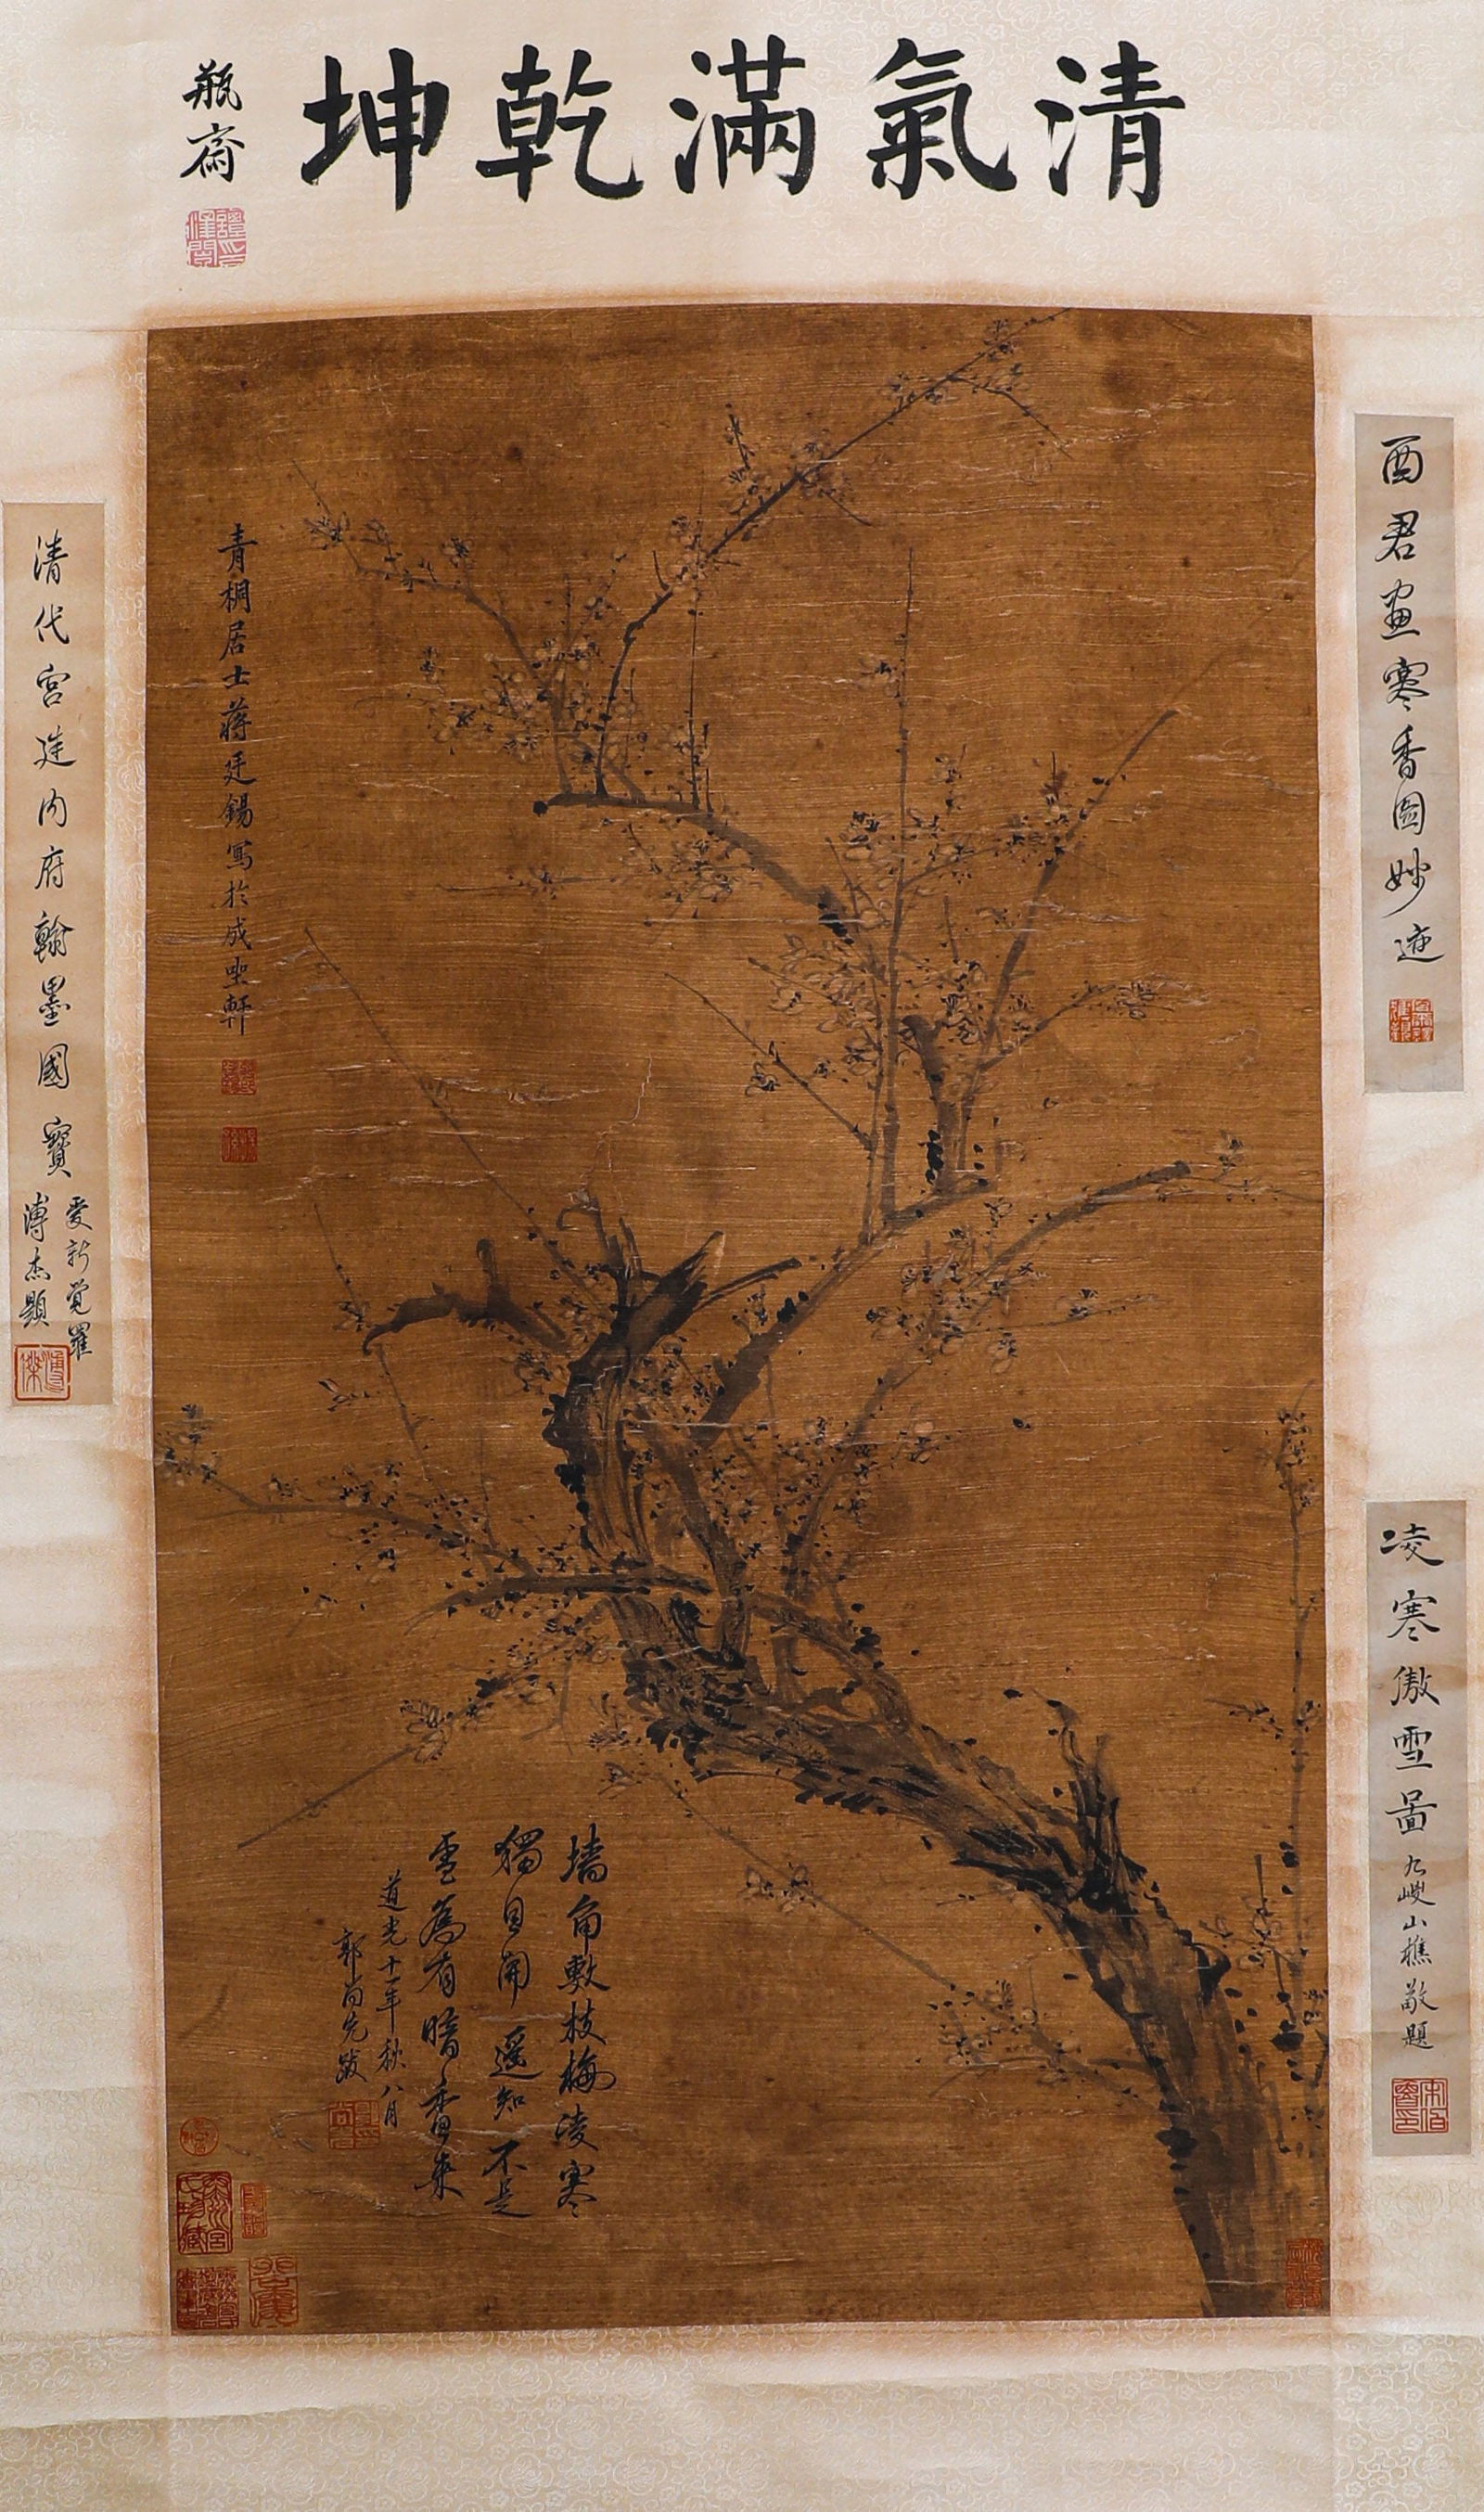 清氣滿乾坤
瓶齋
酉君畫寒香圖妙迹
凌寒傲雪圖
九嵕山樵敬題
青桐居士蔣廷錫寫於成坐軒
墻角數枝梅凌寒
獨自開遥知不是
雪為有暗香来
道光十一年秋八月
郭尚先跋
清代宮廷内府翰墨國寶
愛新覺羅
溥杰題